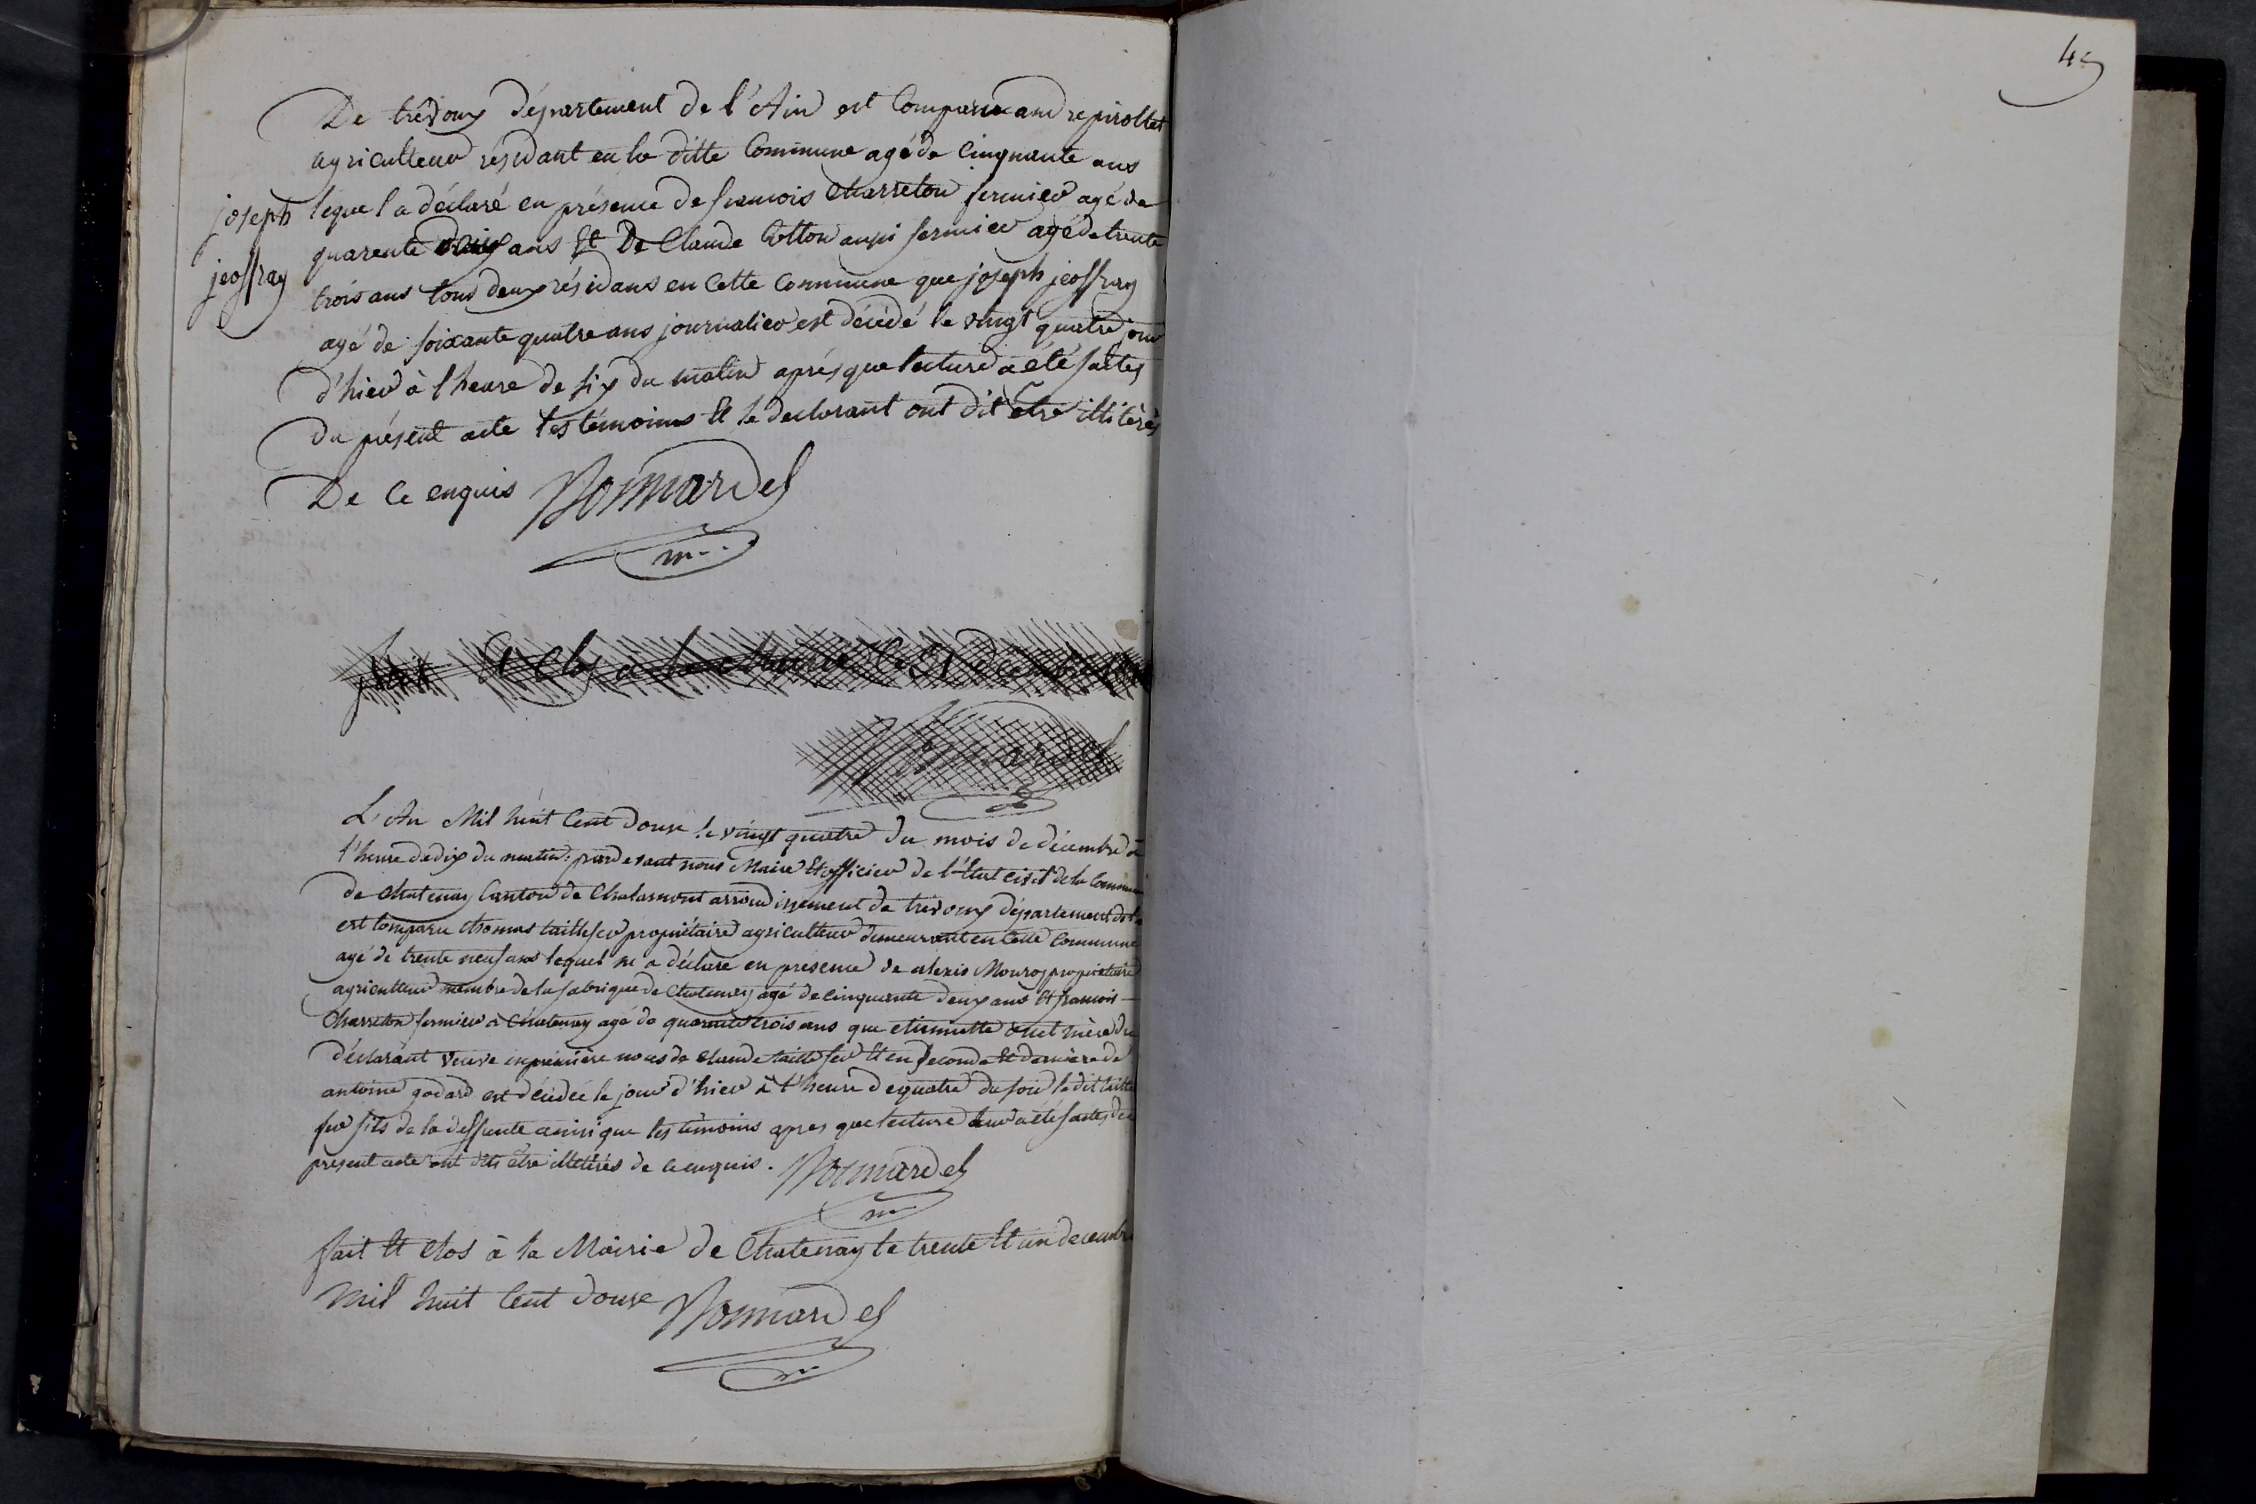 45
De trévoux département de l'Ain est Comparu andre pirollet
agriculteur résidant en la ditte Commune agé de Cinquante ans
joseph
jeoffray
lequel a déclaré en présence de francois Charreton fermier agé de
quarente trois ans Et De Claude Cotton aussi fermier agé de trente
trois ans tous deux résidans en Cette Commune que joseph jeoffray
agé de soixante quatre ans journalier est décédé le vingt quatre jour
d'hier à l'heure de six du matin après que lecture a été faites
Du présent acte Les témoins Et le declarant ont dit être illitèrés
De Ce enquis Bonnardel
Clos a la Mairie le 31 decembre
Bonnardel
L'An Mil huit Cent Douse le vingt quatre du mois de décembre à
l'heure de dix du matin pardevant nous Maire Et officier de l'Etat civil de la Commune
de Chatenay Canton de Chalamont arrondissement de trévoux département de l'
est comparu thomas taillefer propriétaire agriculteur demeurant en Cette Commune
agé de trente neuf ans lequel m'a déclaré en presence de alexis Mouroz propriétaire
agriculteur membre de la fabrique de Chatenay agé de cinquante deux ans Et francois
Charreton fermier à Chatenay agé de quarante trois ans que etiennette mère du
déclarant veuve en première noces de claude taillefer Et en seconde Et dernière de
antoine godard est décédée le jour d'hier à l'heure de quatre du soir le dit taille
fer fils de la deffunte ainsi que les témoins apres que lecture leur a été faites de
present acte ont dits être illetérés de ce enquis. Bonnardel
fait Et clos à la Mairie de Chatenay le trente Et un decembre
Mil huit Cent Douse Bonnardel